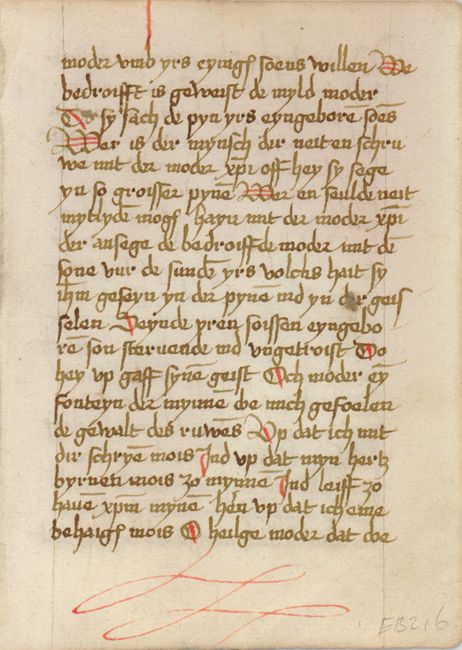 moder vmb yrs eyingß soens willen We
bedroifft is geweist de myld moder
Do sy sach de pyn yrs eyngeborē soēs
Wer is der mynsch der neit en schru
we mit der moder xp̄i off hey sy sege
yn so groisser pynē Wer en sculde neit
mytlydē mogē hayn mit der moder xp̄i
der ansege de bedroiffde moder mit dē
sone vur de sundē yrs volchs hait sy
ih̄m geseyn yn der pynē ind yn der geis
selen Seynde yren soissen eyngebo
rē son steruende ind vngetroist Do
hey vp gaff synē geist Och moder eȳ
fonteyn der mynnē doe mich gefoelen
de gewalt des ruwēs Vp dat ich mit
dir schryē mois Ind vp dat myn hertz
byrnen mois zo mynnē Ind leiff zo
hauē xp̄m mynē hēn vp dat ich eme
behaigē mois O heilge moder dat doe
EB216